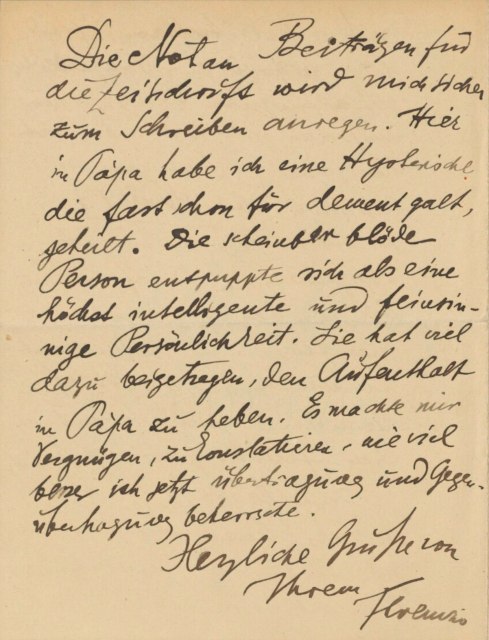 Die Not an Beiträgen für
die Zeitschrift wird mich sicher
zum Schreiben anregen. Hier
in Pápa habe ich eine Hysterische
die fast schon für dement galt,
geheilt. Die scheinbar blöde
Person entpuppte sich als eine
höchst intelligente und feinsin-
nige Persönlichkeit. Sie hat viel
dazu beigetragen, den Aufenthalt
in Pápa zu heben. Es machte mir
Vergnügen, zu constatieren, wie viel
besser ich jetzt Übertragung und Gegen-
übertragung beherrsche.
Herzliche Grüße von
Ihrem Ferenczi